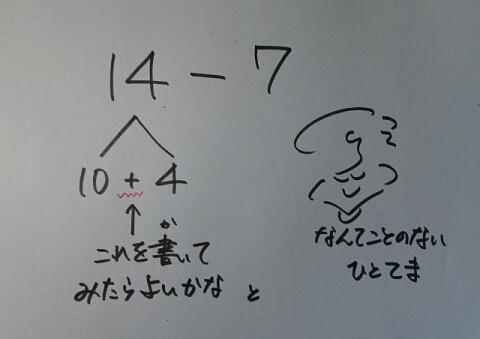 14 − 7
10 + 4
↑
これを書いて
か
みたらよいかな と
なんてことのない
ひとてま